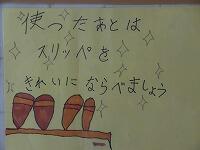 使ったあとは
スリッペを
きれいにならべましょう